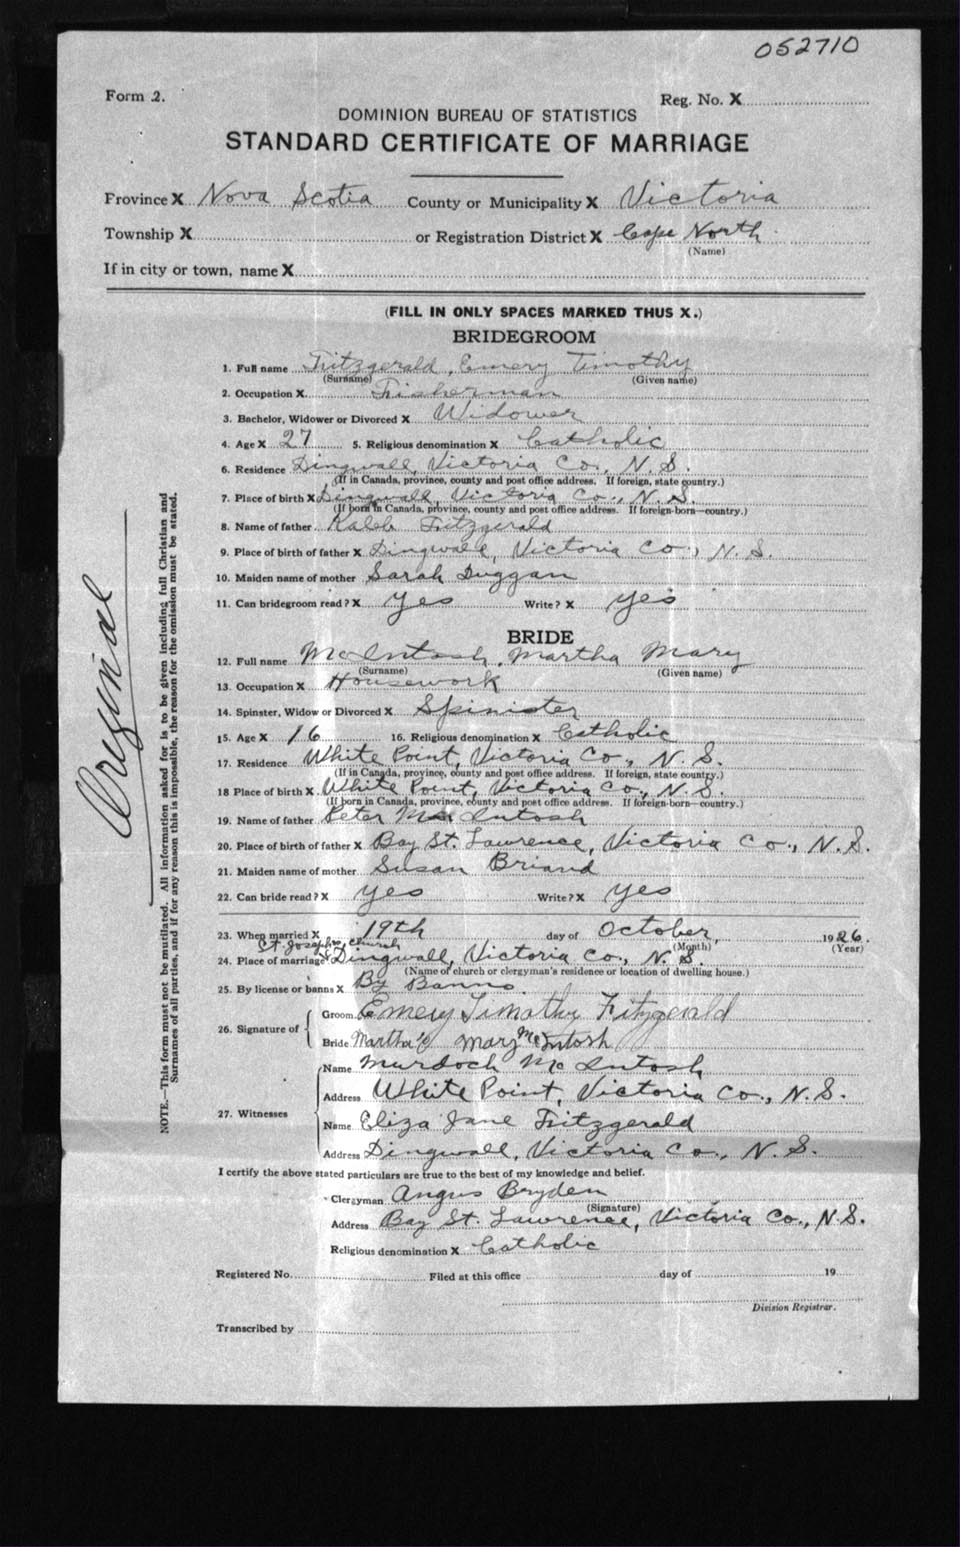 052710
Form 2.
Reg. No. X
DOMINION BUREAU OF STATISTICS
STANDARD CERTIFICATE OF MARRIAGE
Province X Nova Scotia County or Municipality X Victoria
Township X or Registration District X Cape North
(Name)
If in city or town, name X
(FILL IN ONLY SPACES MARKED THUS X.)
BRIDEGROOM
1. Full name Fitzgerald, Emery Timothy
(Surname) (Given name)
2. Occupation X Fisherman
3. Bachelor, Widower or Divorced X Widower
4. Age X 27 5. Religious denomination X Catholic
6. Residence Dingwall, Victoria Co., N.S.
(If in Canada, province, county and post office address. If foreign, state country.)
7. Place of birth X Dingwall, Victoria Co., N.S.
(If born in Canada, province, county and post office address. If foreign-born—country.)
8. Name of father Kaleb Fitzgerald
9. Place of birth of father X Dingwall, Victoria Co., N.S.
10. Maiden name of mother Sarah Duggan
11. Can bridegroom read? X Yes Write? X Yes
BRIDE
12. Full name McIntosh, Martha Mary
(Surname) (Given name)
13. Occupation X Housework
14. Spinster, Widow or Divorced X Spinister
15. Age X 16 16. Religious denomination X Catholic
17. Residence White Point, Victoria Co., N.S.
(If in Canada, province, county and post office address. If foreign, state country.)
18 Place of birth X White Point, Victoria Co., N.S.
(If born in Canada, province, county and post office address. If foreign-born—country.)
19. Name of father Peter McIntosh
20. Place of birth of father X Bay St. Lawrence, Victoria Co., N.S.
21. Maiden name of mother Susan Briand
22. Can bride read? X Yes Write? X Yes
23. When married X 19th day of October, 1926.
(Month) (Year)
St. Joseph's Church
24. Place of marriage X Dingwall, Victoria Co., N.S.
(Name of church or clergyman's residence or location of dwelling house.)
25. By license or banns X By Banns.
26. Signature of Groom Emery Timothy Fitzgerald
Bride Martha Mary McIntosh
27. Witnesses
Name Murdoch McIntosh
Address White Point, Victoria Co., N.S.
Name Eliza Jane Fitzgerald
Address Dingwall, Victoria Co., N.S.
I certify the above stated particulars are true to the best of my knowledge and belief.
Clergyman Angus Bryden
(Signature)
Address Bay St. Lawrence, Victoria Co., N.S.
Religious denomination X Catholic
Registered No. Filed at this office day of 19
Division Registrar.
Transcribed by
Oreginal
NOTE.—This form must not be mutilated. All information asked for is to be given including full Christian and
Surnames of all parties, and if for any reason this is impossible, the reason for the omission must be stated.